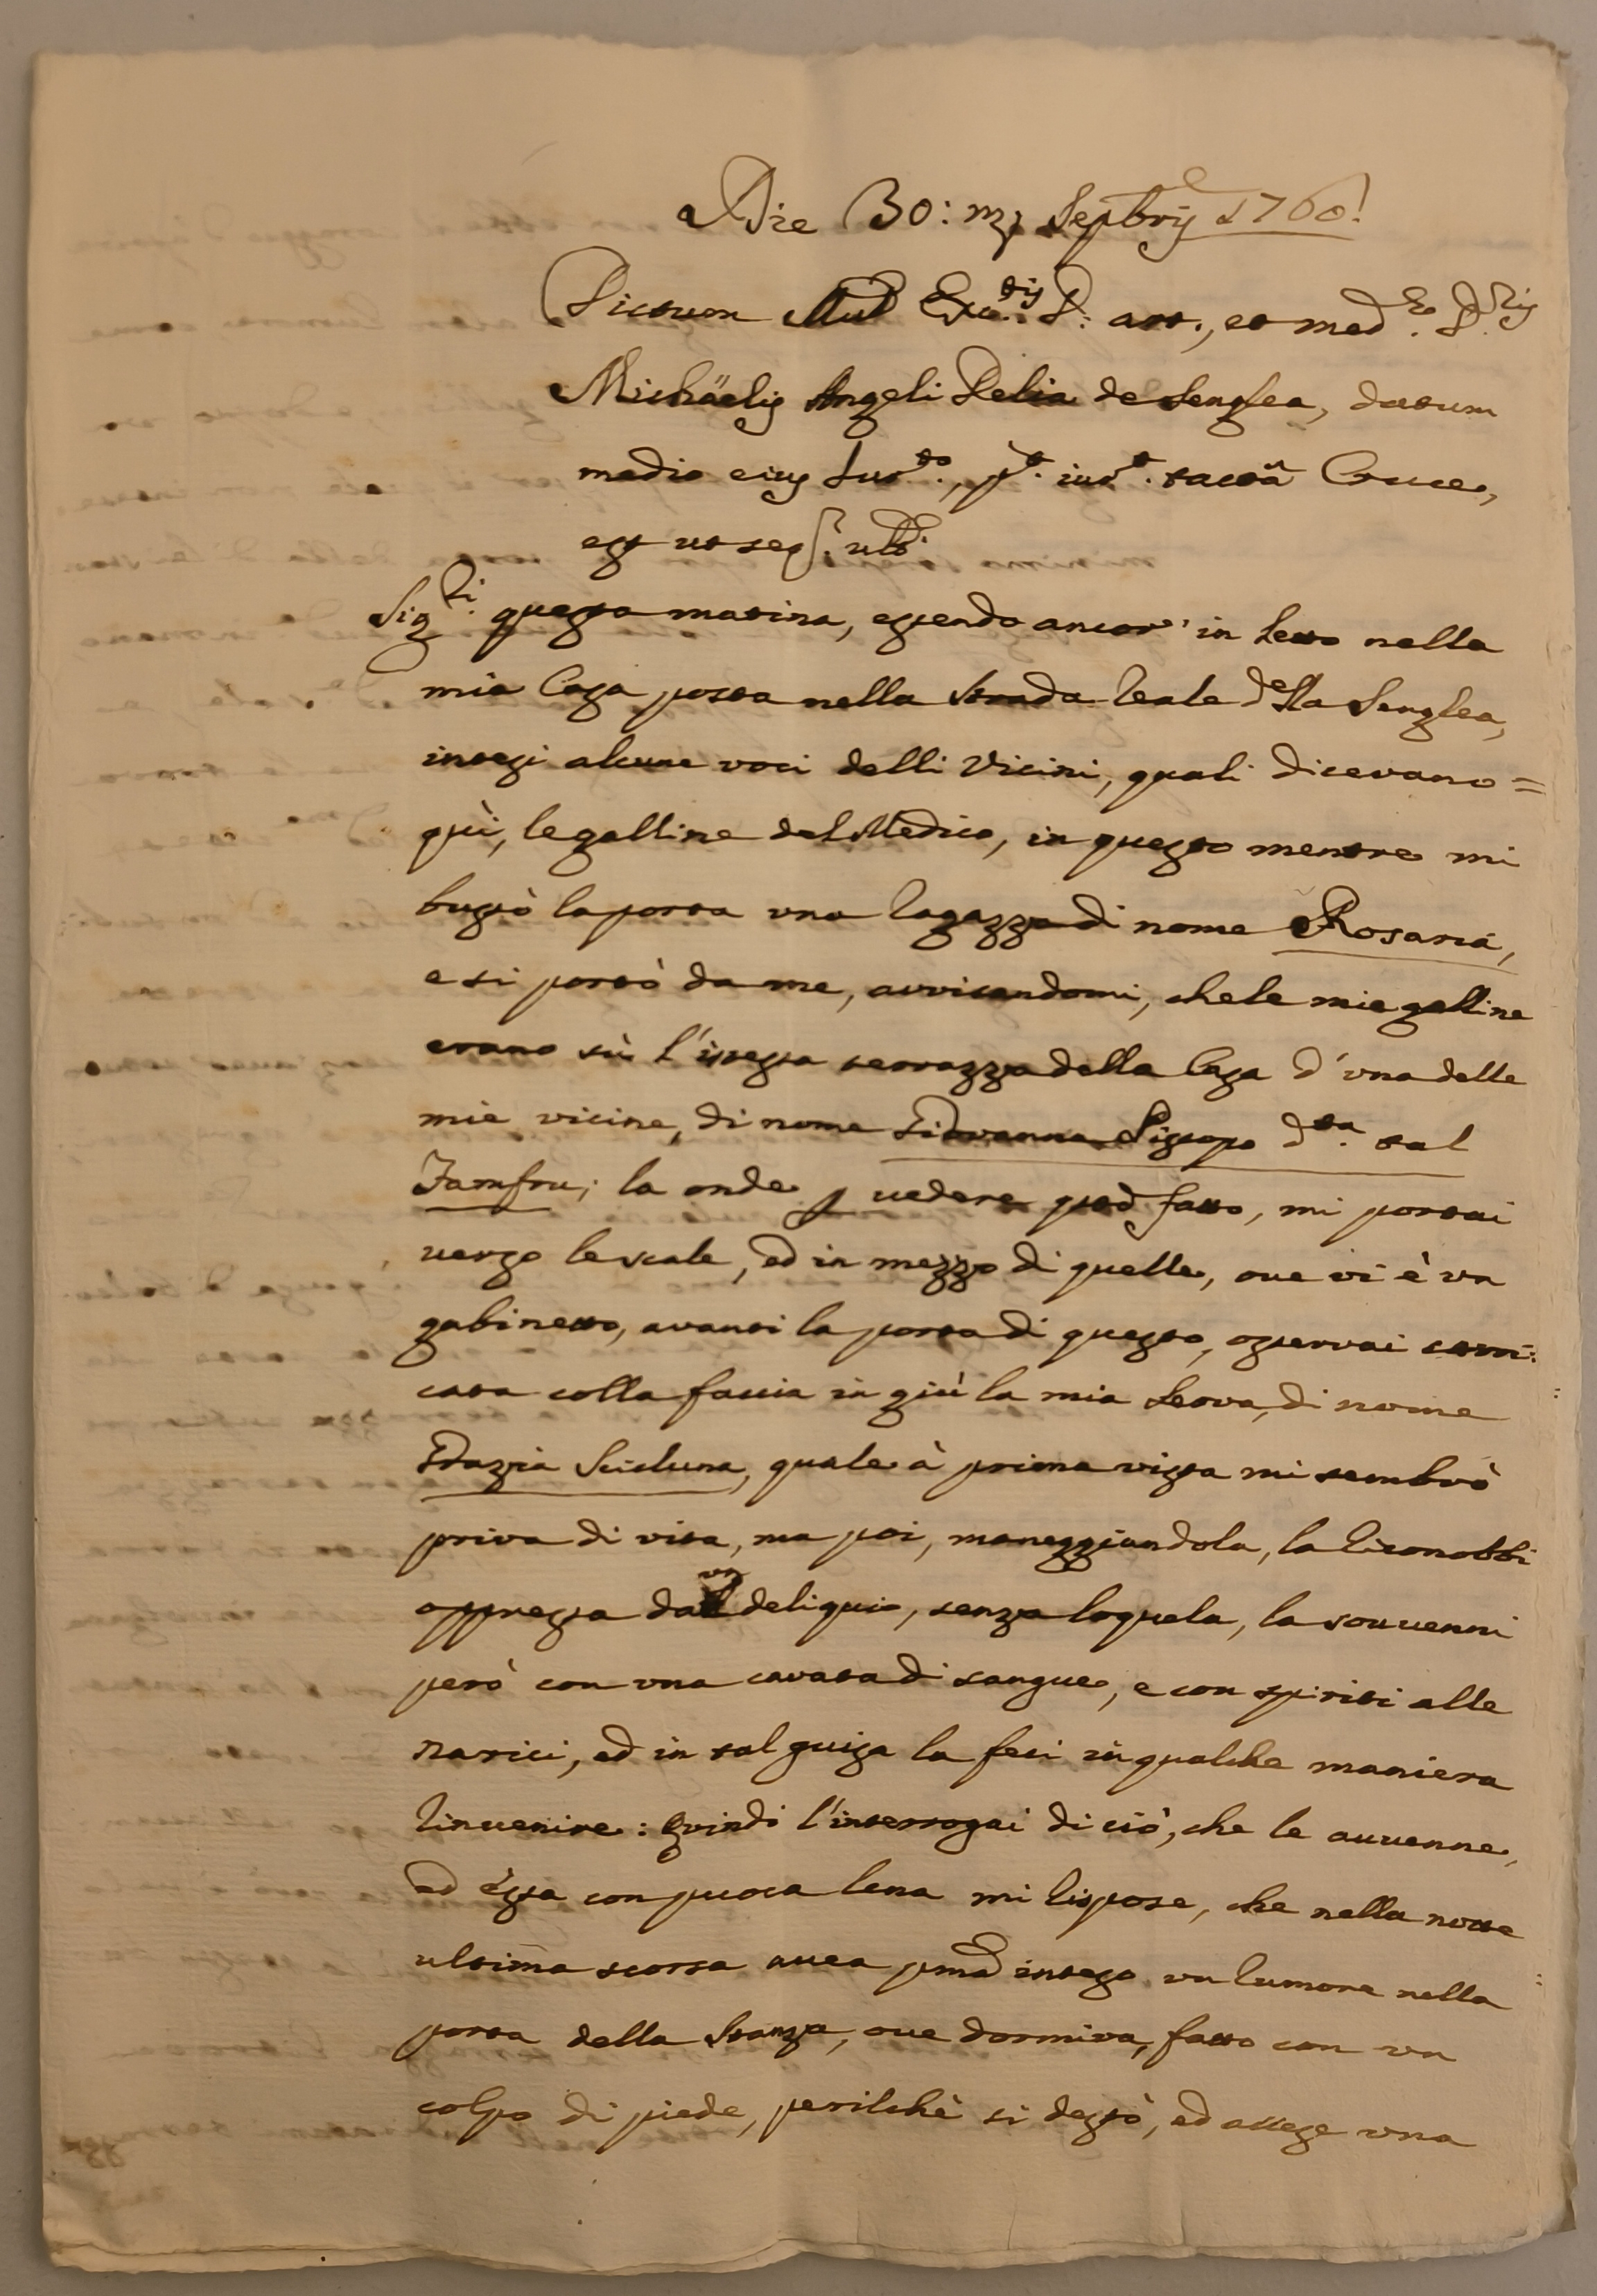 Die 30: m̃s Septbris 1760:
Dictum Mul Exc.dis D: art., et med.e D.ris
Michäelis Angeli Delia de Senglea, datum
medio eius Jur.to, pt. iur.t tactâ Cruce,
est ut seq.r ubt.
Sig.ri questa matina, essendo ancor' in Letto nella
mia Casa posta nella Strada Reale della Senglea,
intesi alcune voci delli Vicini, quali dicevano =
quì, le galline del Medico, in questo mentre mi
bussò la porta una Ragazza di nome Rosaria,
e si portò da me, avvisandomi, che le mie galline
erano sù l'istessa terrazza della Casa d'una delle
mie vicine, di nome Giovanna Piscopo d.ta tal
Zamfru; la onde p vedere qsd fatto, mi portai
verso le scale, ed in mezzo di quelle, ove vi è un
gabinetto, avanti la porta di questo, osservai cori:
cata colla faccia in giù la mia Serva, di nome
Grazia Scicluna, quale à prima vista mi sembrò
priva di vita, ma poi, maneggiandola, la Riconobbi
oppressa da un deliquio, senza loquela, la souvenni
però con una cavata di sangue, e con spiriti alle
narici, ed in tal guisa la feci in qualche maniera
Rinvenire: Quindi l'interrogai di ciò, che le auuenne,
ed essa con puoca lena mi Rispose, che nella notte
ultima scorsa auea pmã inteso un Rumore nella
porta della Stanza, ove dormiva, fatto con un
colpo di piede, perilchè si destò, ed accese una